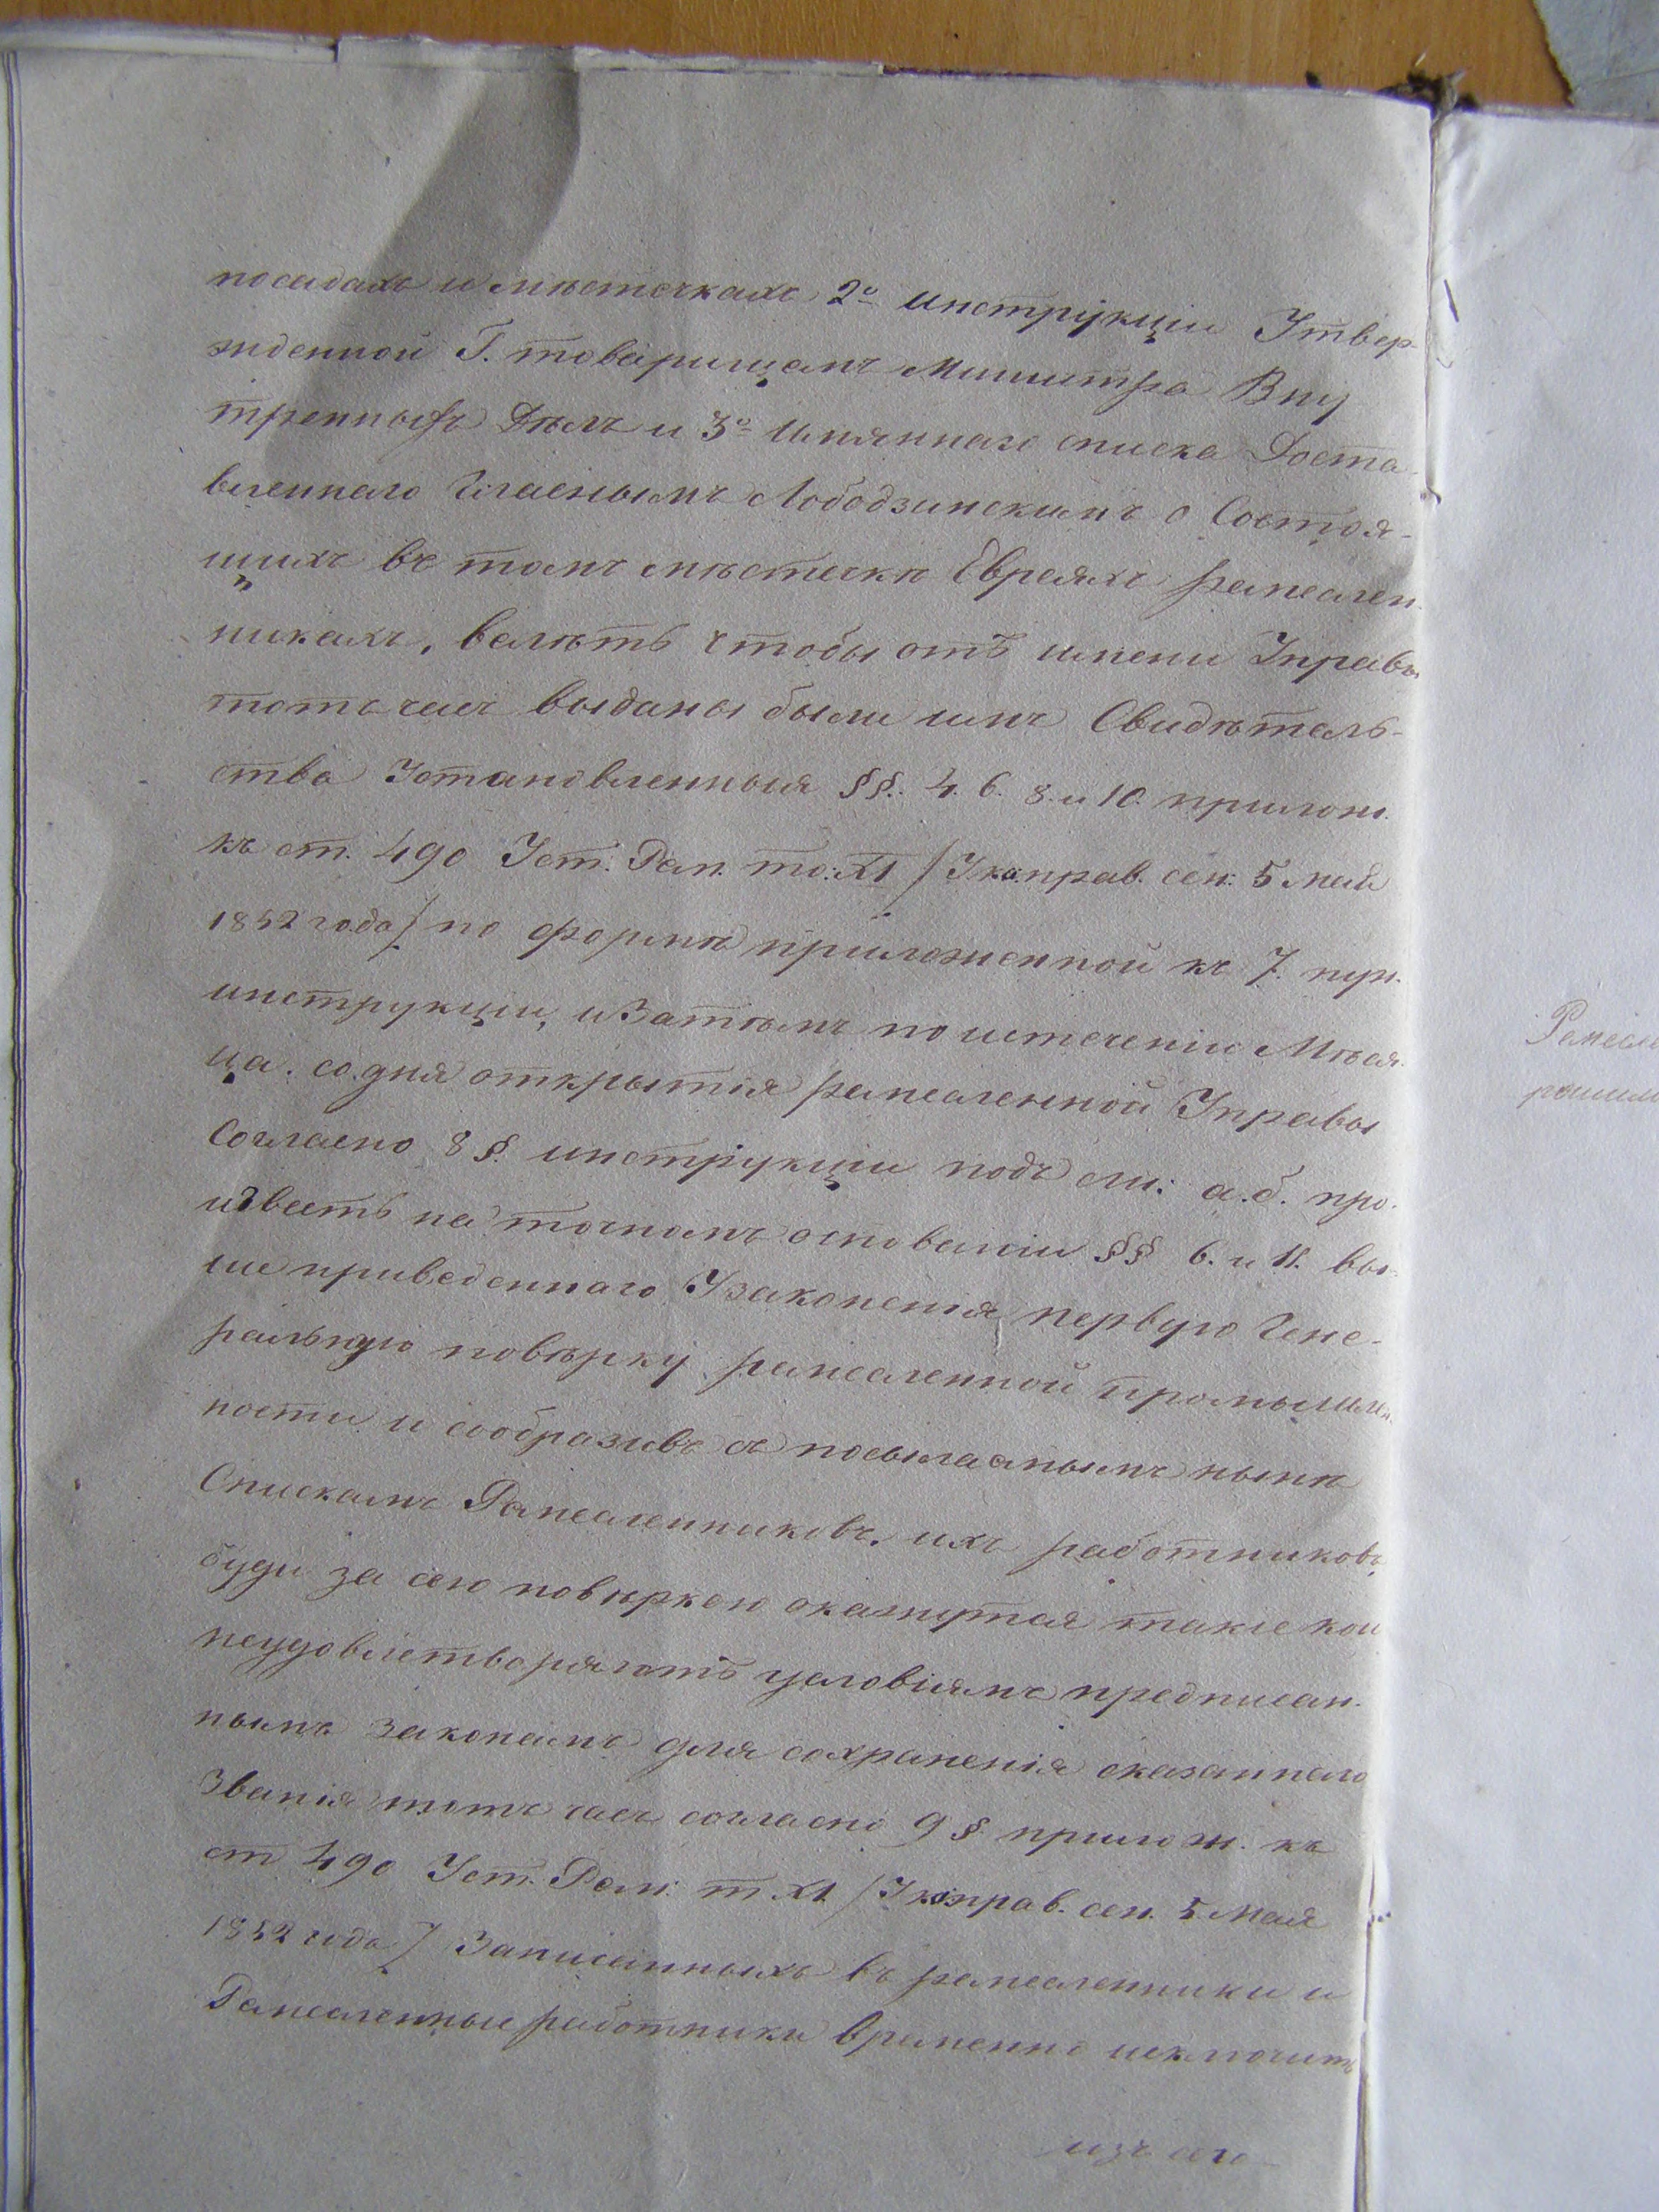 посадахъ и мѣстечкахъ, 2º инструкціи Утвер-
жденной Г. товарищемъ Министра Вну
тренныхъ Дѣлъ и 3º имяннаго списка Доста-
вленнаго Гласнымъ Лободзинскимъ о Состоя-
щихъ въ томъ мѣстечкѣ Евреяхъ ремеслен
никахъ, велѣть чтобы отъ имени Управы
тотъ часъ выданы были имъ Свидѣтель-
ства Установленныя §§. 4. 6. 8. и 10. прилож.
къ ст. 490 Уст. Рем. то: XI /Ука. прав. сен: 5 Мая
1852 года/ по формѣ приложенной къ 7. пун.
инструкціи, и Затѣмъ по истеченіи Мѣся-
ца. со дня открытія ремесленной Управы
Согласно 8 §. инструкціи подъ ли: а. б. про-
известь на точномъ основаніи §§ 6. и 11. вы-
ше приведеннаго Узаконенія первую Гене-
ральную повѣрку ремесленной промышлен.
ности и сообразивъ съ посылаемымъ нынѣ
Спискамъ Ремесленниковъ, ихъ работниковъ,
буди за сею повѣркою окажутся такіе кои
неудовлетворяютъ условіямъ предписан-
нымъ закономъ для сохраненія сказаннаго
Званія тотъ часъ согласно 9 § прилож. къ
ст 490 Уст. Рем: т XI. /Ук. прав. сен. 5. Мая
1852 года/ Записанныхъ въ ремесленники и
Ремесленные работники временно исключить
изъ сего
Ремесле